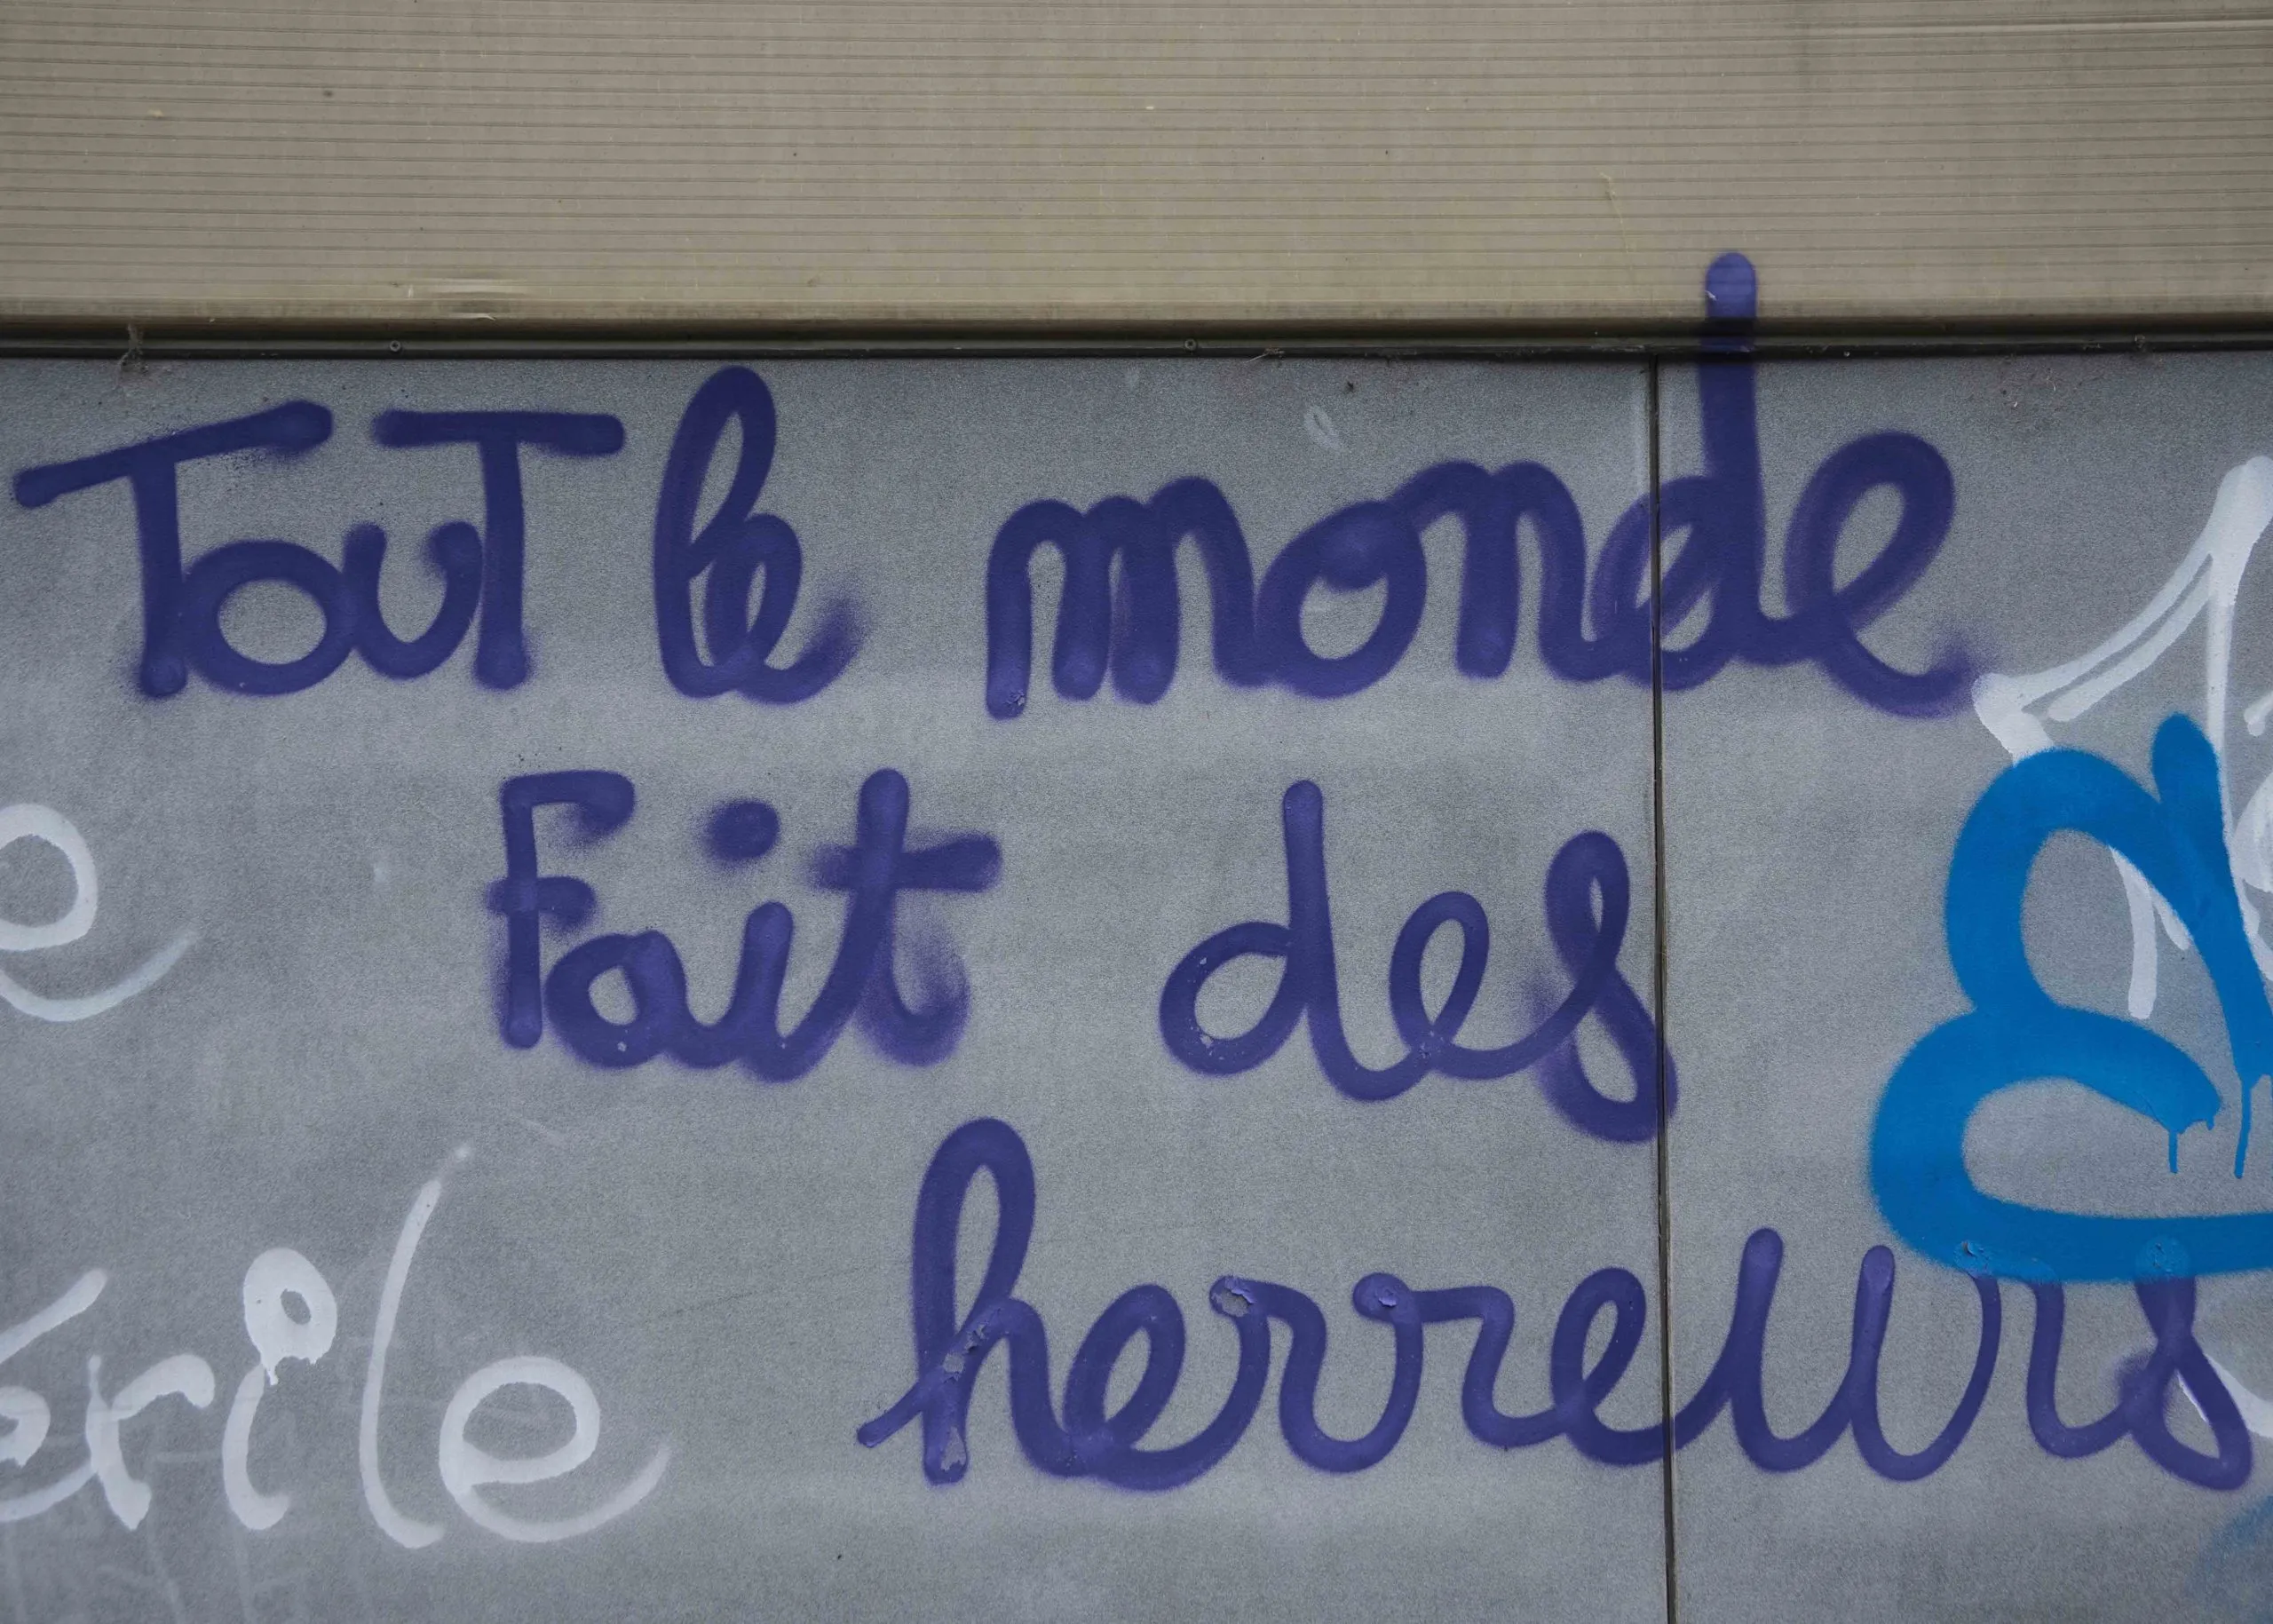 TouT le monde
Fait des
herreurs